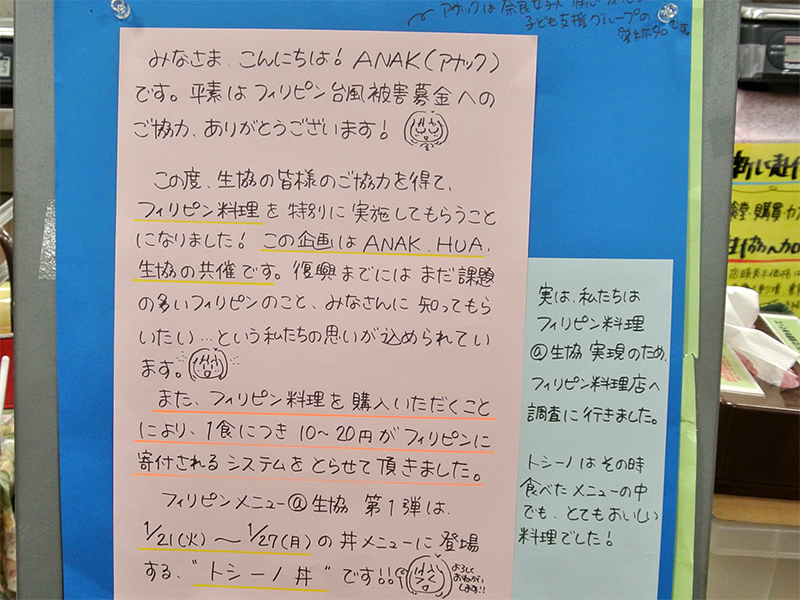 アナックは奈良女子大
子ども支援グループの
みなさま、こんにちは! ANAK(アナック)
です。平素はフィリピン台風被害募金への
ご協力、ありがとうございます!
この度、生協の皆様のご協力を得て、
フィリピン料理を特別に実施してもらうこと
になりました! この企画はANAK、HUA、
生協の共催です。復興までにはまだ課題
の多いフィリピンのこと、みなさんに知ってもら
いたい…という私たちの思いが込められてい
ます。
また、フィリピン料理を購入いただくこと
により、1食につき10~20円がフィリピンに
寄付されるシステムをとらせて頂きました。
フィリピンメニュー@生協 第1弾は、
1/21(火)~1/27(月)の丼メニューに登場
する、"トシーノ丼"です!!
よろしく
おねがい
します!!
実は、私たちは
フィリピン料理
@生協 実現のため、
フィリピン料理店へ
調査に行きました。
トシーノはその時
食べたメニューの中
でも、とてもおいしい
料理でした!
新しい
食堂・購買・カフ
生協への加
店頭表示価格